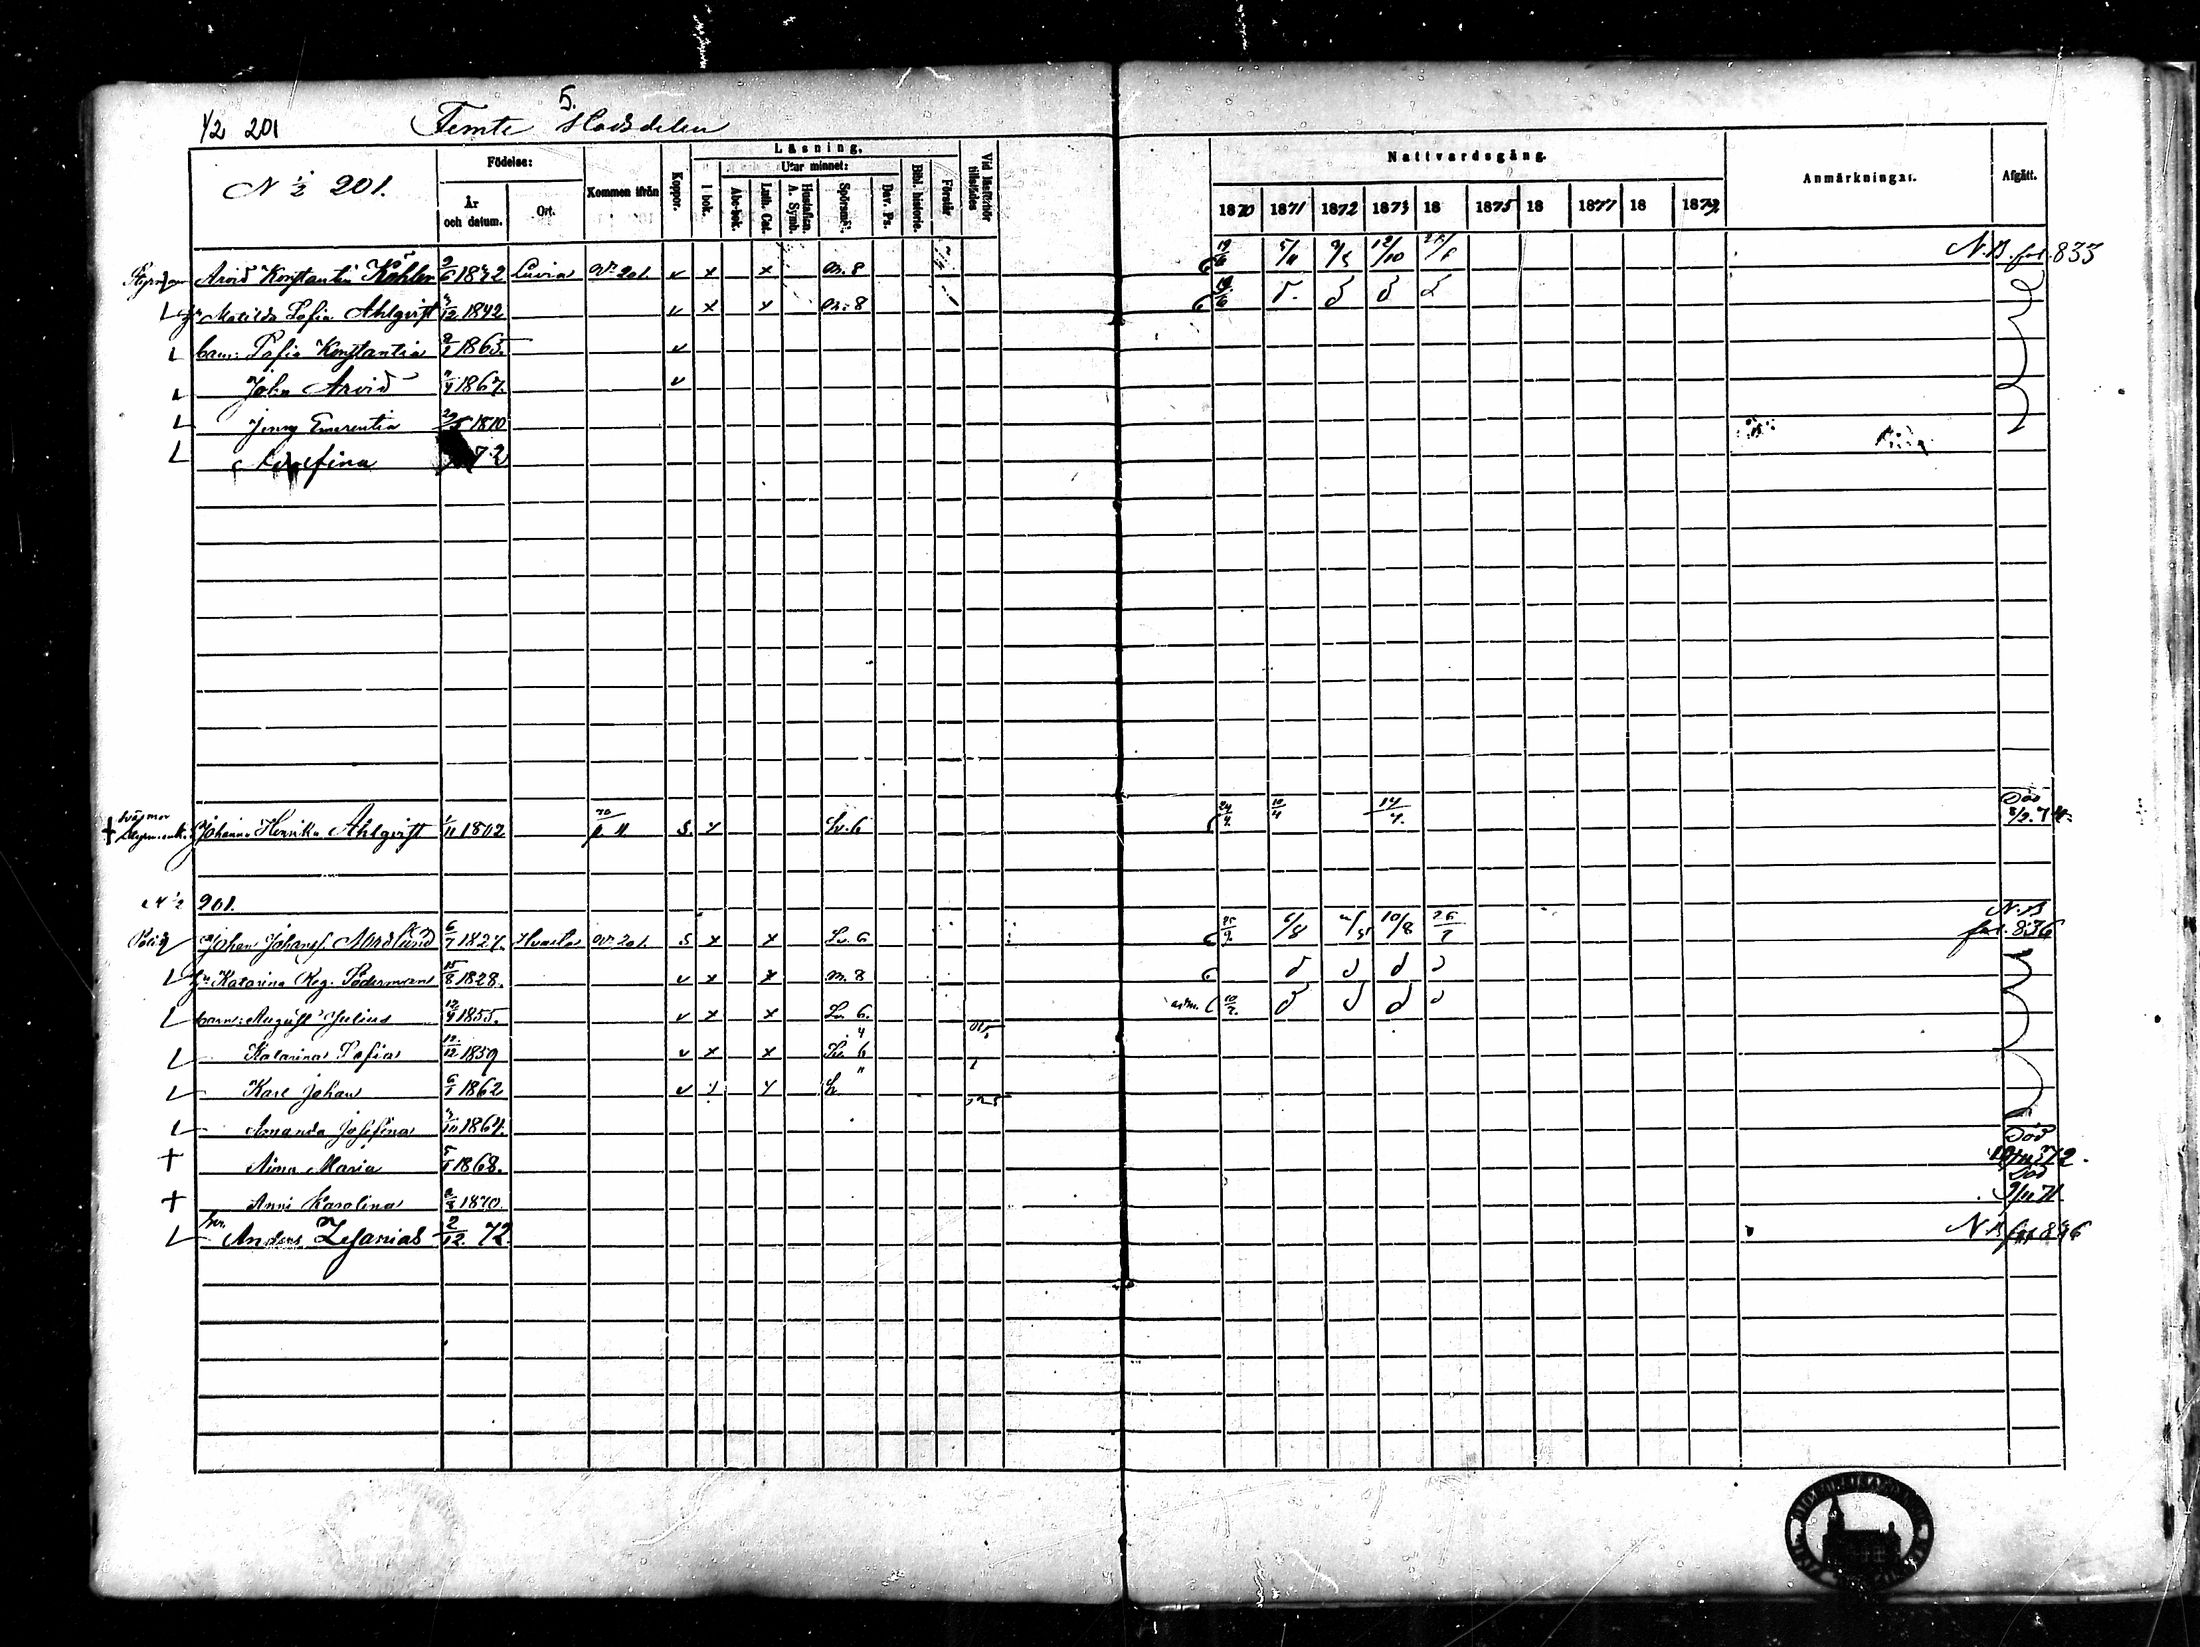 1/2 201 Femte 5. Stadsdelen
N ½ 201.
Födelse:
År och datum.
Ort.
Kommen ifrån
Koppor.
Läsning.
I bok.
Utar minnet:
Abc-bok.
Luth. Cat.
Hustaflan. A. Symb.
Spörsmål.
Dav. Ps.
Bibl. historie.
Förstår
Vid läsförhör tillstädes
Nattvardsgång.
1870 1871 1872 1873 18 1875 18 1877 18 1879
Anmärkningar.
Afgått.
Arvid Konstantin Köhler 2/6 1842 Luvia N:o 201. v x x m. 8 19/6 5/11 9/5 12/10 N.B. fol. 835
hu Matilda Sofia Ahlqvist 4/12 1842 v x x m: 8 19/6
barn: Sofia Konstantia 1865. v
John Arvid 1867. v
Jenny Emerentia 1870
Josefina 72
Svägmor Johanna Henrika Ahlqvist 1/11 1802 70/p 11 S. Sv. 6 24/4 10/4 14/4. Död 8/2. 74.
N ½ 201.
Johan Johanss. Nordlund 6/7 1827. N:o 201. S x x Sv. 6 25/9. 6/8 10/8 26/7 N.B fol. 836
hu Katarina Reg. Söderman 15/8 1828. v x x m. 8
barn: August Julius 12/9 1855. v x x Sv. 6. adm. 10/7.
Katarina Sofia 12/12 1859 v x x Sv 6
Karl Johan 6/1 1862 v
Amanda Josefina 1864.
Aina Maria 1868. Död 72.
Anni Karolina 1870. Död 9/11 71.
Anders Zefanias 2/12. 72. N.B fol 836